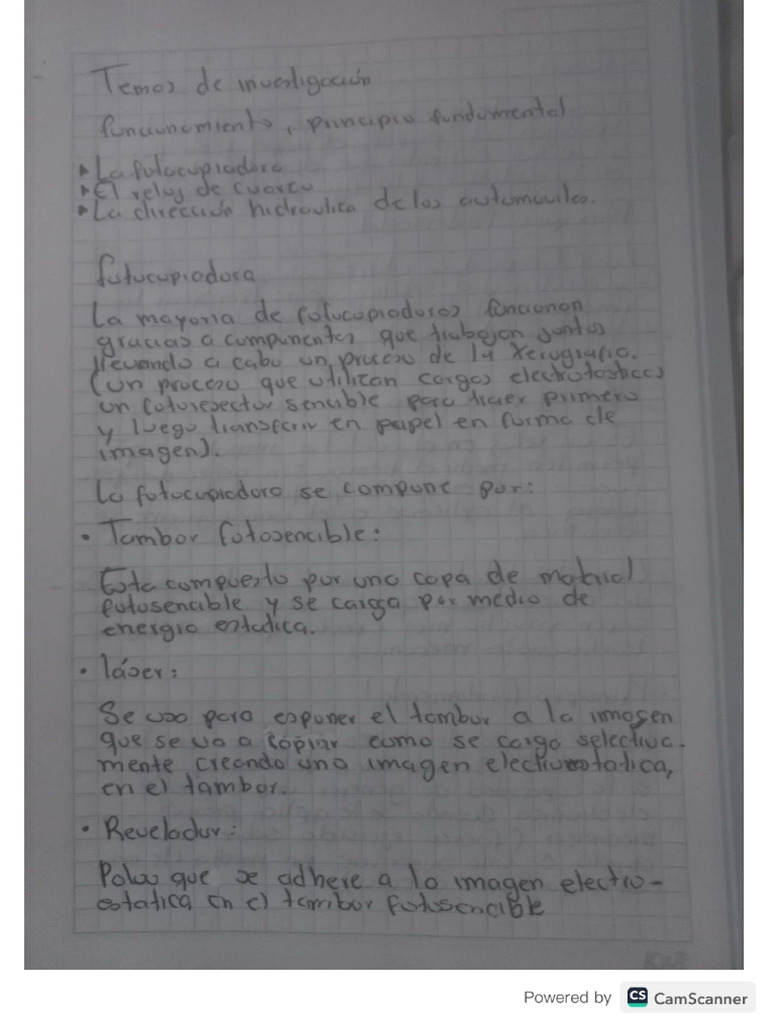 Temas de investigación
funcionamiento, principio fundamental
▸ La fotocopiadora
▸ El reloj de cuarzo
▸ La dirección hidraulica de los automoviles.
fotocopiadora
La mayoria de fotocopiadoras funcionan
gracias a componentes que trabajan juntos
llevando a cabo un proceso de la Xerografia.
(un proceso que utilizan cargas electrotasticas
un fotoresector sensible para traer primero
y luego transferir en papel en forma de
imagen).
La fotocopiadora se compone por:
• Tambor fotosencible:
Esta compuesto por una capa de material
fotosencible y se carga por medio de
energia estatica.
• láser:
Se usa para esponer el tambor a la imagen
que se va a copiar como se carga selectiva-
mente creando una imagen electrostatica,
en el tambor.
• Revelador:
Polvo que se adhere a la imagen electro-
estatica en el tambor fotosencible
Powered by CS CamScanner